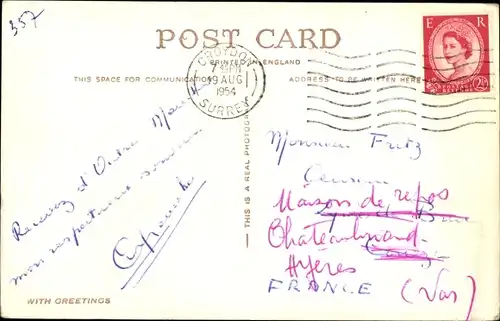 357
POST CARD
PRINTED IN ENGLAND
THIS SPACE FOR COMMUNICATION
ADDRESS TO BE WRITTEN HERE
CROYDON
7
19 AUG
1954
SURREY
E R
POSTAGE REVENUE
2½
Recevez d'Outre Manche
mon respectueux souvenir
THIS IS A REAL PHOTOGRAPH
Monsieur Fritz
Maison de repos
Chateaubriand
Hyères
FRANCE (Var)
WITH GREETINGS